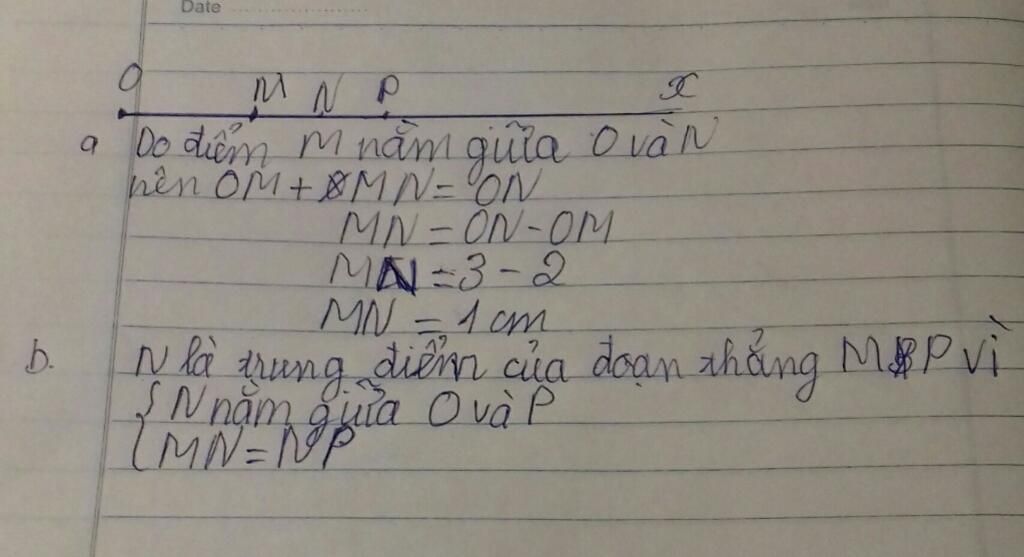 Date
O M N P x
a Do điểm M nằm giữa O và N
nên OM + MN = ON
MN = ON - OM
MN = 3 - 2
MN = 1 cm
b. N là trung điểm của đoạn thẳng MP vì
{ N nằm giữa O và P
{ MN = NP